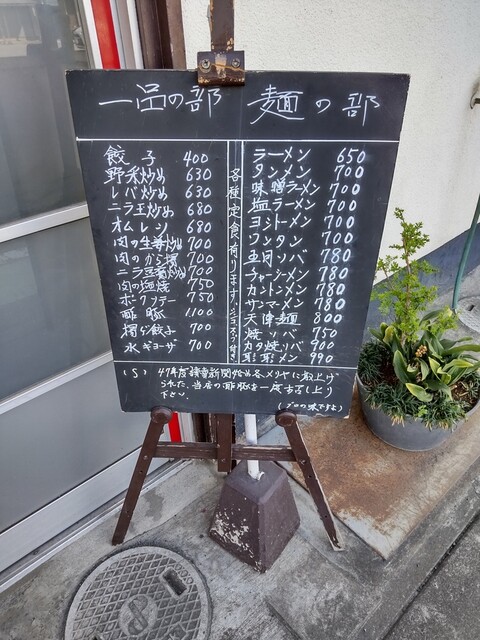 一品の部
餃子 400
野菜炒め 630
レバ炒め 630
ニラ玉炒め 680
オムレツ 680
肉の生姜炒め 700
肉のから揚 700
ニラ豆腐炒め 700
肉の塩焼 750
ポークソテー 750
酢豚 1100
揚げ餃子 700
水ギョーザ 700
各種定食有ります
麺の部
ラーメン 650
タンメン 700
味噌ラーメン 700
塩ラーメン 700
モヤシソバ 700
ワンタン 700
五目ソバ 780
チャーシーメン 780
カントンメン 780
サンマーメン 780
天津麺 800
焼ソバ 750
カタ焼ソバ 900
メン 990
(S) 47年度 新聞 各 に取上げ
られた、当店の酢豚を一度お召し上り
下さい。
(プロの味ですよ)